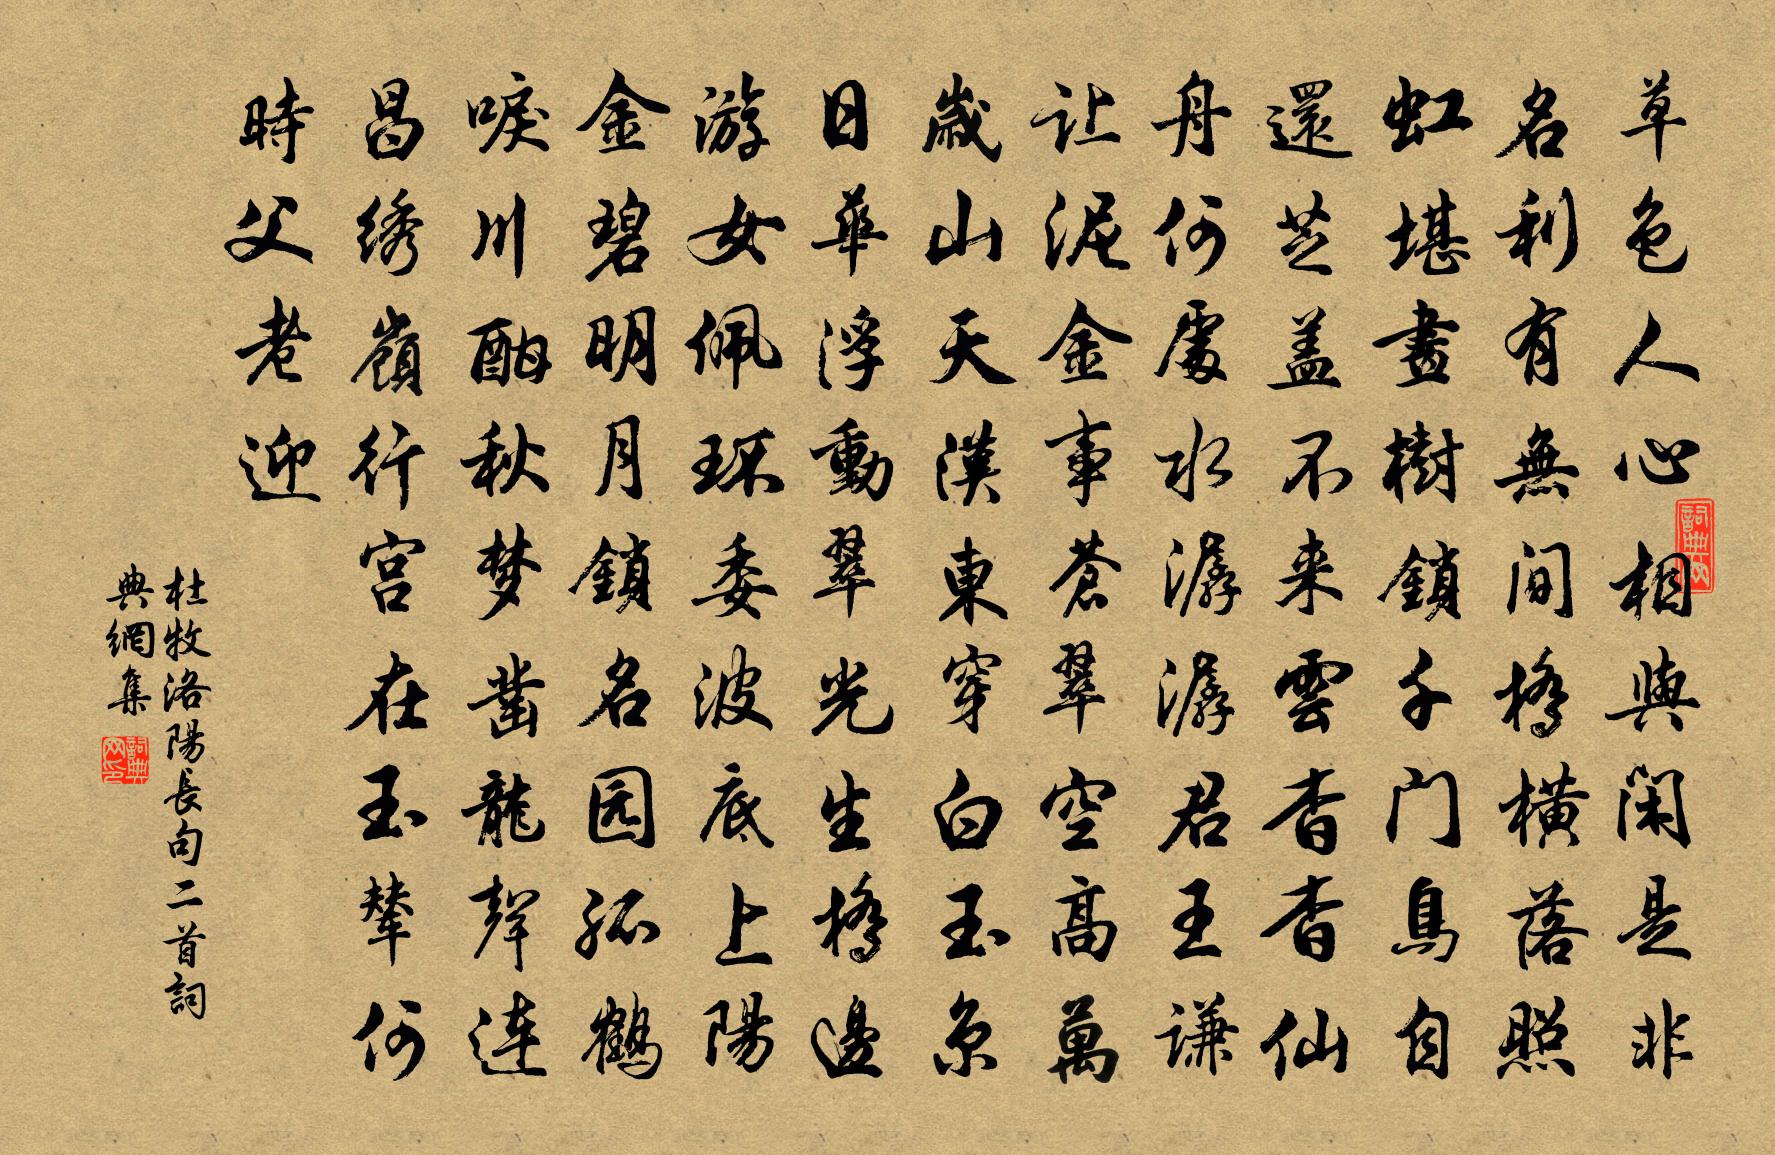 草色人心相與閑是非
名利有無间橋横落照
虹堪畫樹鎖千门鳥自
還芝盖不来雲杳杳仙
舟何處水潺潺君王谦
让泥金事蒼翠空高萬
歲山天漢東穿白玉京
日華浮動翠光生橋邊
游女佩环委波底上陽
金碧明月鎖名园孤鶴
唳川酣秋梦凿龍聲連
昌绣嶺行宫在玉輦何
時父老迎
杜牧洛陽長句二首詞
典網集
詞典网
詞典网印